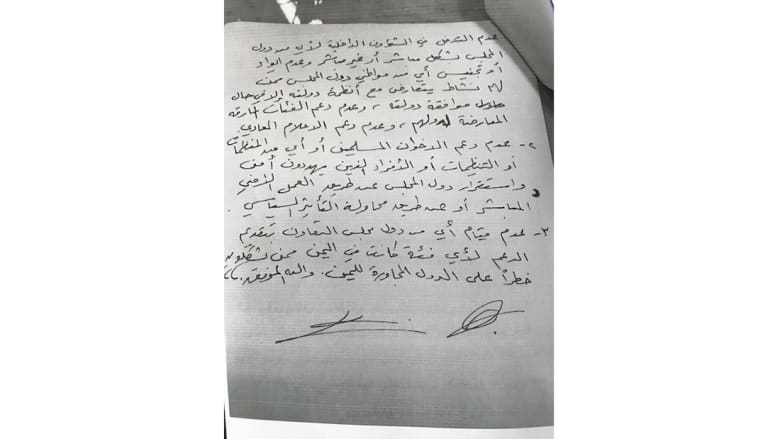 عدم التدخل في الشؤون الداخلية لأي من دول
المجلس بشكل مباشر أو غير مباشر وعدم إيواء
أو تجنيس أي من مواطني دول المجلس ممن
لهم نشاط يتعارض مع أنظمة دولته إلا في حال
موافقة دولته ، وعدم دعم الفئات المارقة
المعارضة لدولهم ، وعدم دعم الاعلام المعادي.
٢- عدم دعم الاخوان المسلمين أو أي من المنظمات
أو التنظيمات أو الأفراد الذين يهددون أمن
واستقرار دول المجلس عن طريق العمل الأمني
المباشر أو عن طريق محاولة التأثير السياسي
٣- عدم قيام أي من دول مجلس التعاون بتقديم
الدعم لأي فئة كانت في اليمن ممن يشكلون
خطراً على الدول المجاورة لليمن. والله الموفق.